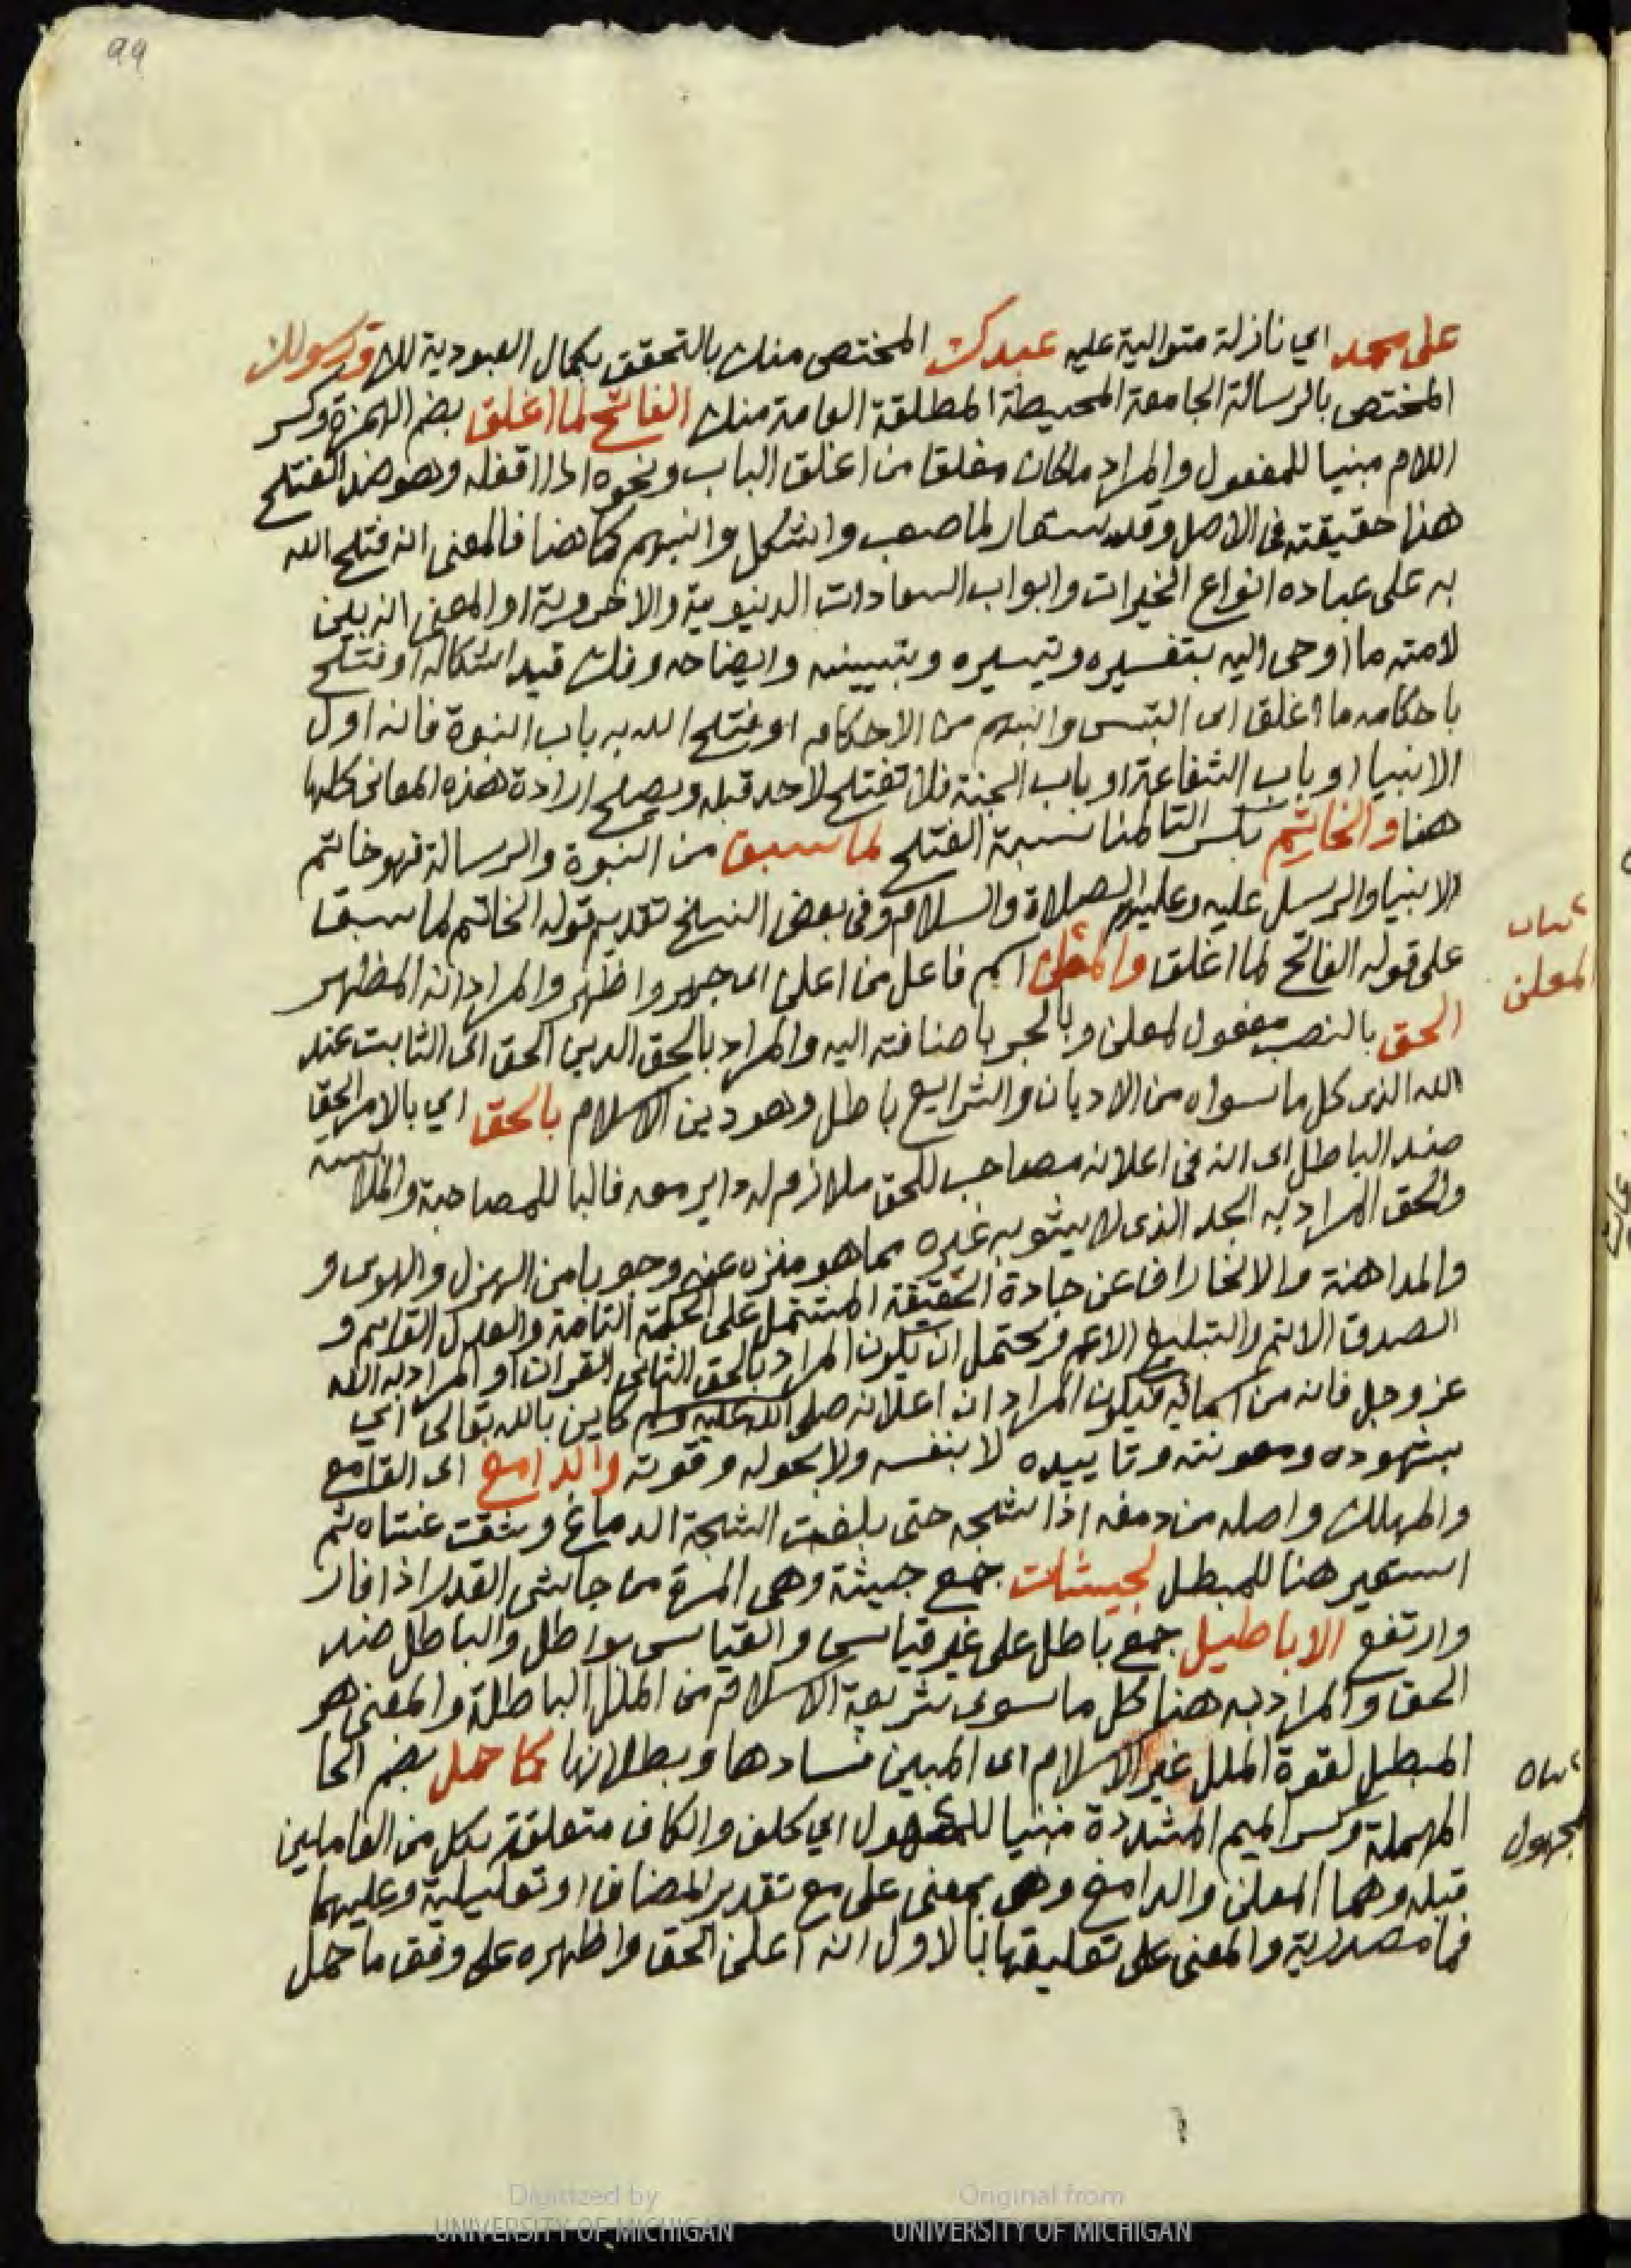 99
على محمد اي نازلة متوالية عليه عبدك المختص منك بالتحقق بكمال العبودية لك ورسولك
المختص بالرسالة الجامعة المحيطة المطلقة العامة منك الفاتح لما اغلق بضم الهمزة وكسر
اللام مبنيا للمفعول والمراد ما كان مغلقا من اغلق الباب ونحوه اذا اقفله وهو ضد الفتح
هذا حقيقته في الاصل وقد يستعار لما صعب واشكل وانبهم كما هنا فالمعنى انه فتح الله
به على عباده انواع الخيرات وابواب السعادات الدنيوية والاخروية او المعنى انه بين
لامته ما اوحى اليه بتفسيره وتيسيره وتبيينه وايضاحه وفك قيد اشكاله او فتح
باحكامه ما اغلق اى التبس وانبهم من الاحكام او فتح الله به باب النبوة فانه اول
الانبيا او باب الشفاعة او باب الجنة فلا تفتح لاحد قبله ويصلح ارادة هذه المعانى كلها
هنا والخاتم بكسر التا لمناسبة الفتح لما سبق من النبوة والرسالة فهو خاتم
الانبيا والرسل عليه وعليهم الصلاة والسلام وفى بعض النسخ تقديم قوله الخاتم لما سبق
على قوله الفاتح لما اغلق والمعلن اسم فاعل من اعلن اى جهر واظهر والمراد انه المظهر
المعلن
الحق بالنصب مفعول لمعلن وبالجر باضافته اليه والمراد بالحق الدين الحق اى الثابت عند
الله الذى كل ما سواه من الاديان والشرايع باطل وهو دين الاسلام بالحق اي بالامر الحق
ضد الباطل اى انه فى اعلانه مصاحب للحق ملازم له داير معه فالبا للمصاحبة والملابسة
والحق المراد به الجد الذى لا يشوبه غيره مما هو منزه عنه وجوبا من الهزل والهوى و
والمداهنة والانحراف عن جادة الحقيقة المشتمل على الحكمة التامة والعدل القايم و
الصدق الاتم والتبليغ الاعم ويحتمل ان يكون المراد بالحق الثانى القران او المراد به الله
عز وجل فانه من اسمائه فيكون المراد ان اعلانه صلى الله عليه وسلم كاين بالله تعالى اي
بشهوده ومعونته وتاييده لا بنفسه ولا بحوله وقوته والدامغ اى القامع
والمهلك واصله من دمغه اذا شجه حتى بلغت الشجة الدماغ وشقت غشاه ثم
استعير هنا للمبطل لجيشات جمع جيشة وهى المرة من جاشى القدر اذا فار
وارتفع الاباطيل جمع باطل على غير قياسى والقياسى بواطل والباطل ضد
الحق والمراد به هنا كل ما سوى شريعة الاسلام من الملل الباطلة والمعنى هو
المبطل لقوة الملل غير الاسلام اى المبين فسادها وبطلانها كما حمل بضم الحا
المهملة وكسر الميم المشددة مبنيا للمفعول اي كلف والكاف متعلقة بكل من العاملين
مجهول
قبله وهما المعلن والدامغ وهى بمعنى على مع تقدير المضاف او تعليلية وعليهما
فما مصدرية والمعنى على تعليقها بالاول انه اعلن الحق واظهره على وفق ما حمل
Digitized by
UNIVERSITY OF MICHIGAN
Original from
UNIVERSITY OF MICHIGAN